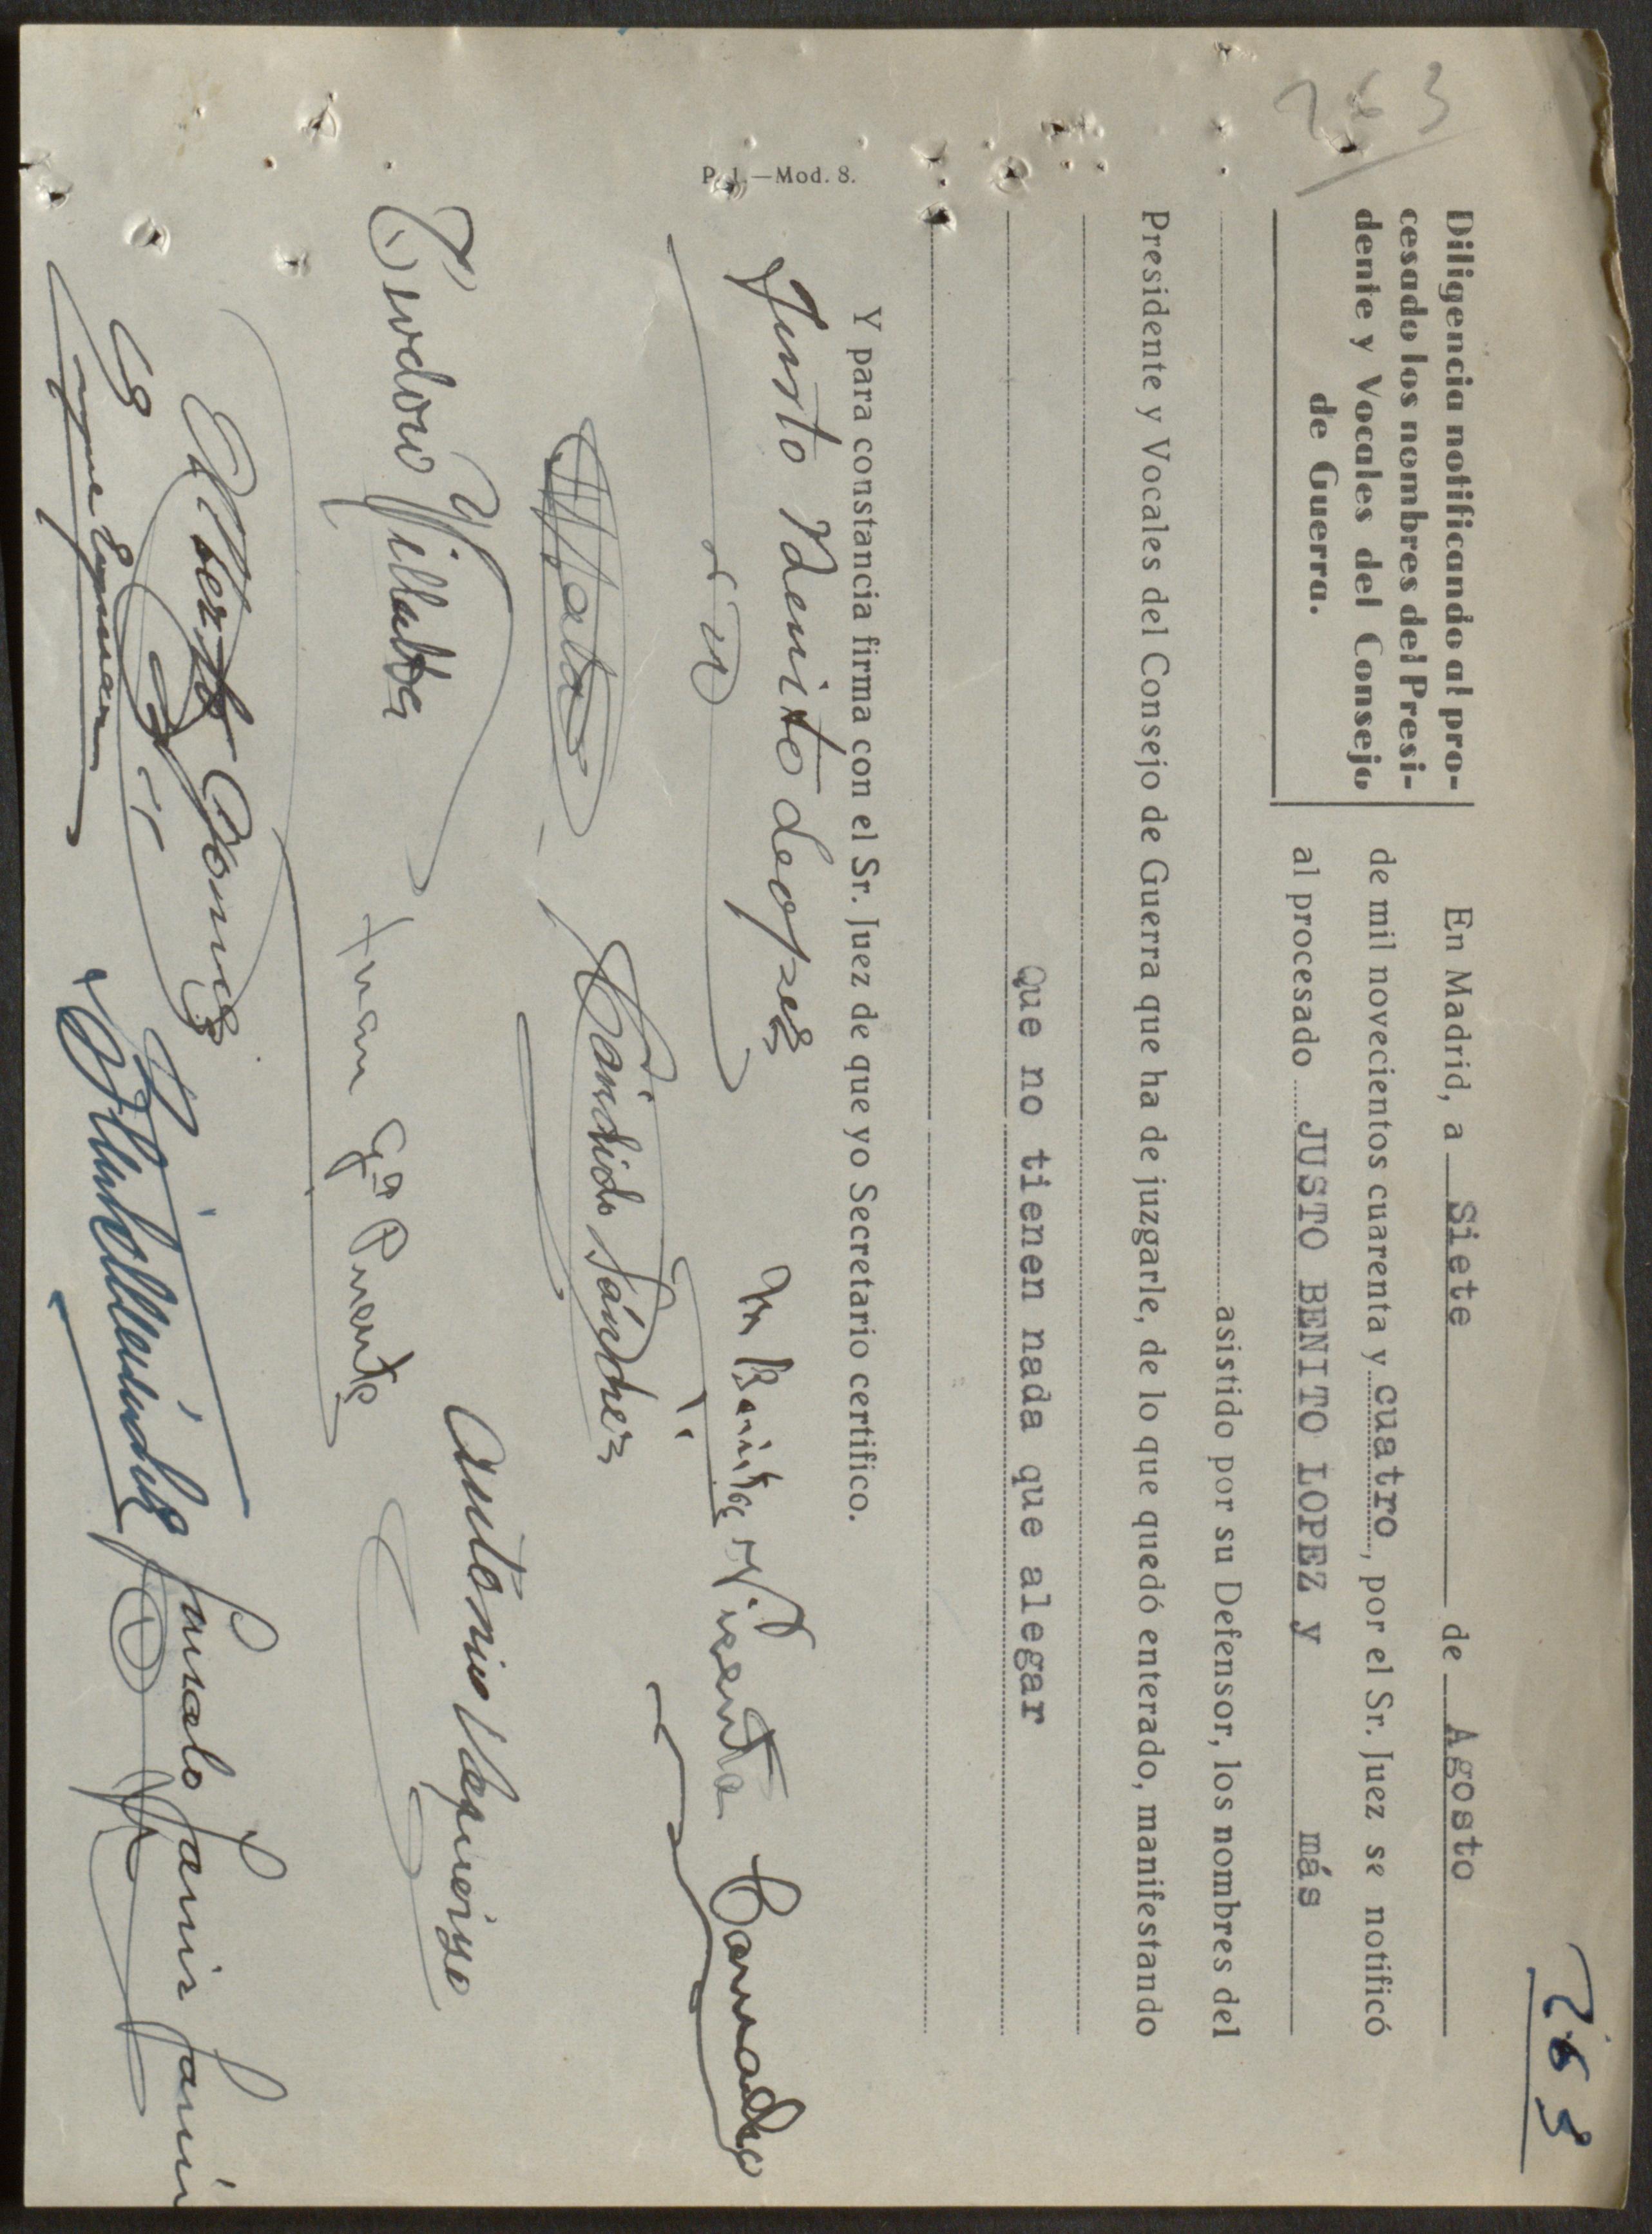 263
263
Diligencia notificando al pro-
cesado los nombres del Presi-
dente y Vocales del Consejo
de Guerra.
En Madrid, a Siete de Agosto
de mil novecientos cuarenta y cuatro, por el Sr. Juez se notificó
al procesado JUSTO BENITO LOPEZ y más
asistido por su Defensor, los nombres del
Presidente y Vocales del Consejo de Guerra que ha de juzgarle, de lo que quedó enterado, manifestando
Que no tienen nada que alegar
Y para constancia firma con el Sr. Juez de que yo Secretario certifico.
P. J.—Mod. 8.
Justo Benito Lopez
Vicenta Camacho
Cándido Sánchez
Antonio
Teodoro Villalba
Juan Gª Puente
Alberto Gomez